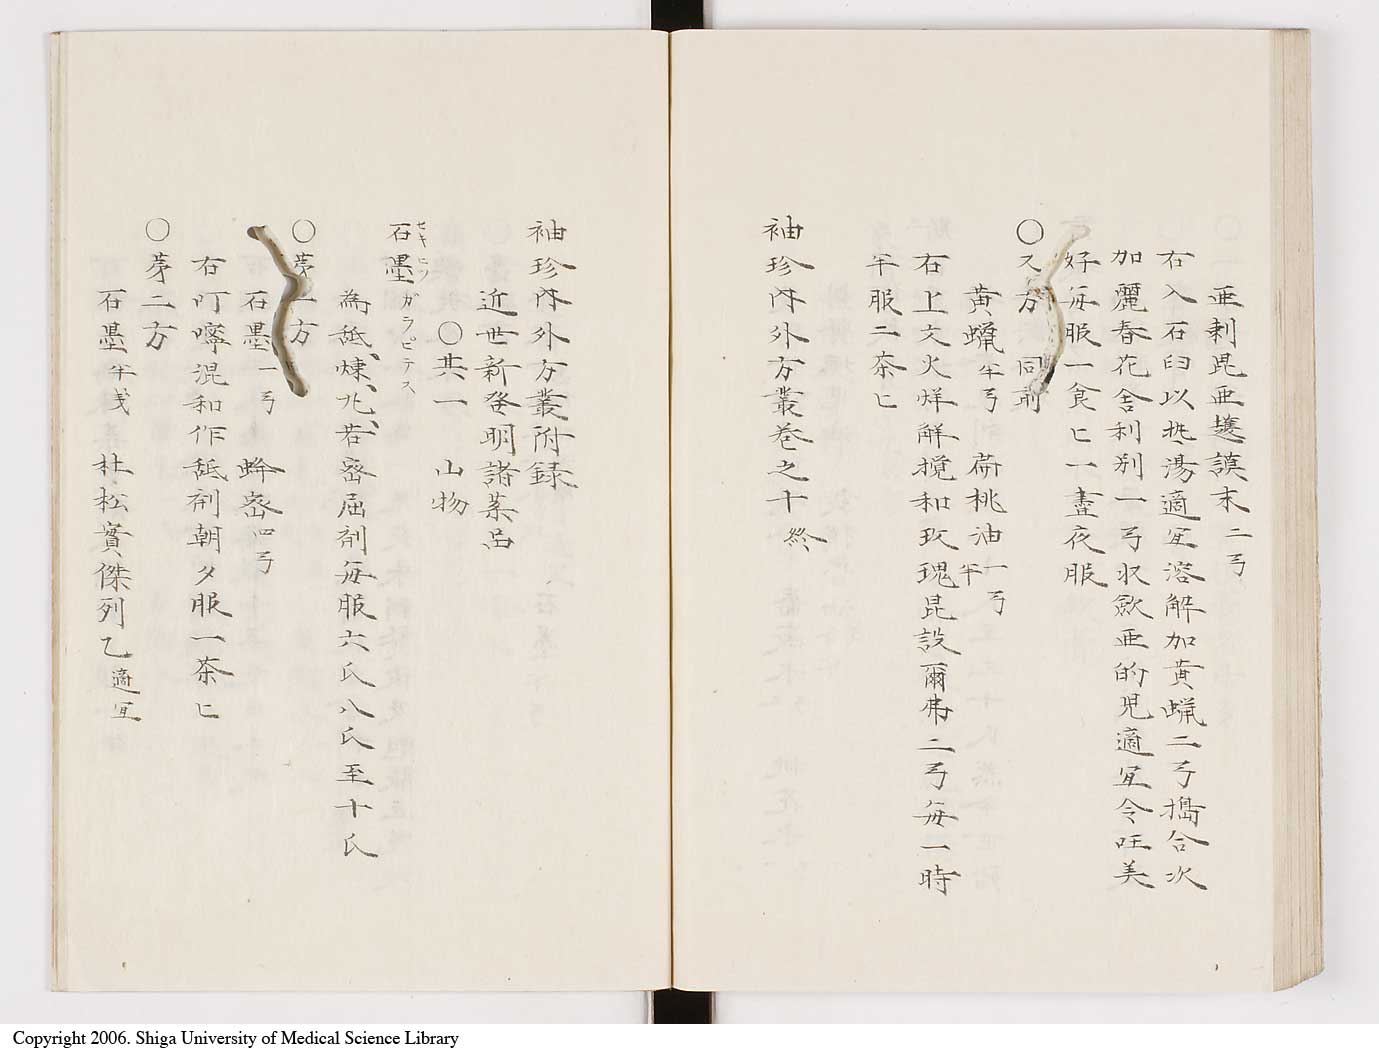 亜剌毘亜護謨末 二弓
右入石臼以熱湯適宜溶解加黄蝋二弓搗合次
加麗春花舎利別一弓収斂亜的児適宜令旺美
好毎服一食匕一晝夜服
〇又方 同前
黄蝋 半弓 扁桃油 一弓半
右上文火烊解攪和玫瑰昆設爾弗二弓毎一時
半服二茶匕
袖珍内外方叢巻之十 終
袖珍内外方叢附録
近世新發明諸薬品
〇其一 山物
石墨 セキボク ガラピテス
為舐煉、丸、若密屈剤毎服六氏八氏至十氏
〇第一方
石墨 一弓 蜂密 四弓
右叮嚀混和作舐剤朝夕服一茶匕
〇第二方
石墨 半戔 杜松實傑列乙 適宜
Copyright 2006. Shiga University of Medical Science Library